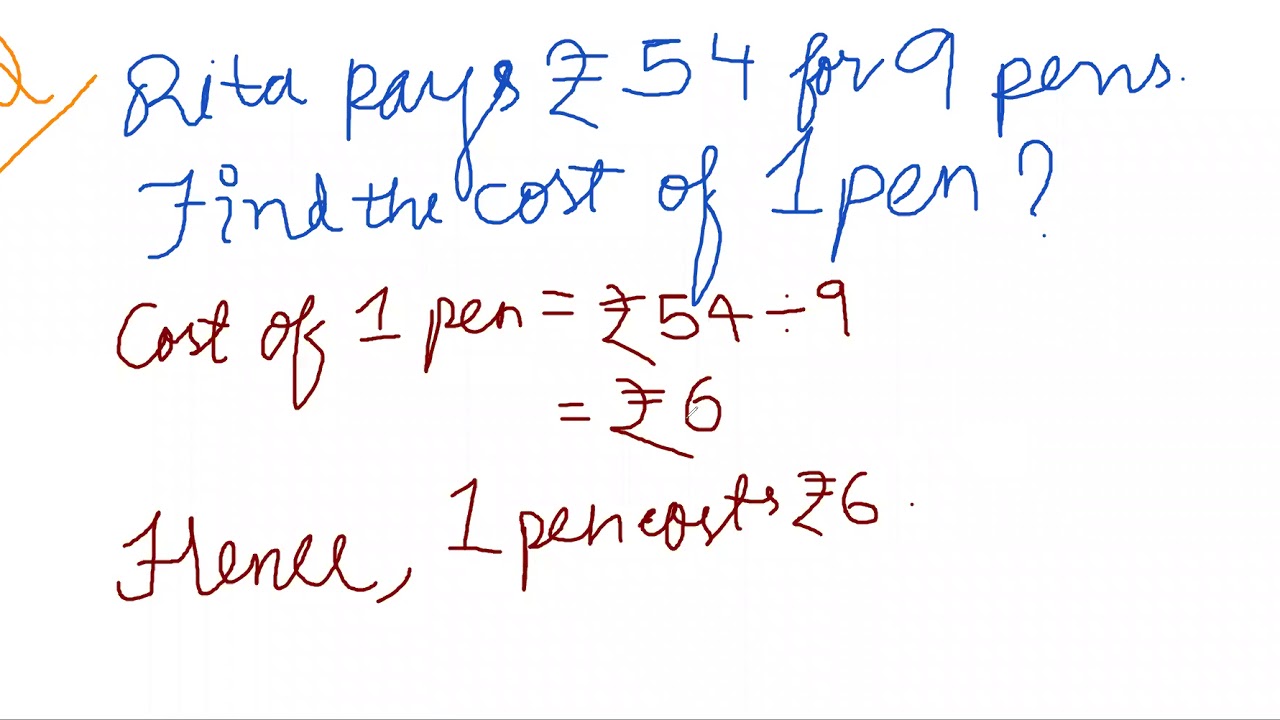 Rita pays ₹ 54 for 9 pens.
Find the cost of 1 pen ?
Cost of 1 pen = ₹54 ÷ 9
= ₹ 6
Hence, 1 pen costs ₹6 .